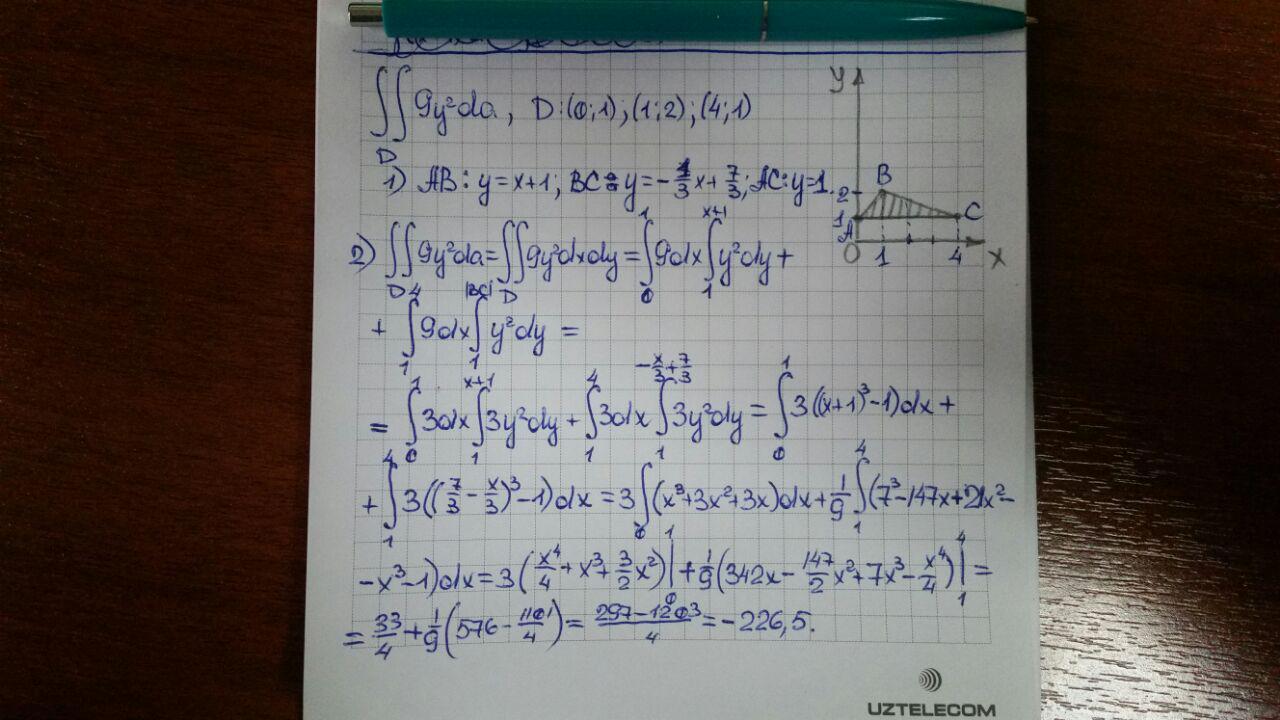 ∬_D 9y²da, D:(0;1);(1;2);(4;1)
1) AB: y=x+1; BC: y=-1/3x+7/3; AC: y=1.
2) ∬_D 9y²da=∬_D 9y²dxdy=∫_0^1 9dx∫_1^{x+1} y²dy+
+ ∫_1^4 9dx∫_1^{|BC|} y²dy =
= ∫_0^1 3dx∫_1^{x+1} 3y²dy+∫_1^4 3dx∫_1^{-x/3+7/3} 3y²dy=∫_0^1 3((x+1)³-1)dx+
+∫_1^4 3((7/3-x/3)³-1)dx=3∫_0^1(x³+3x²+3x)dx+1/9∫_1^4(7³-147x+21x²-
-x³-1)dx=3(x⁴/4+x³+3/2x²)|_0^1+1/9(342x-147/2x²+7x³-x⁴/4)|_1^4=
=33/4+1/9(576-1101/4)=(297-1203)/4=-226,5.
y
2
B
1
A
C
0
1
4
x
UZTELECOM